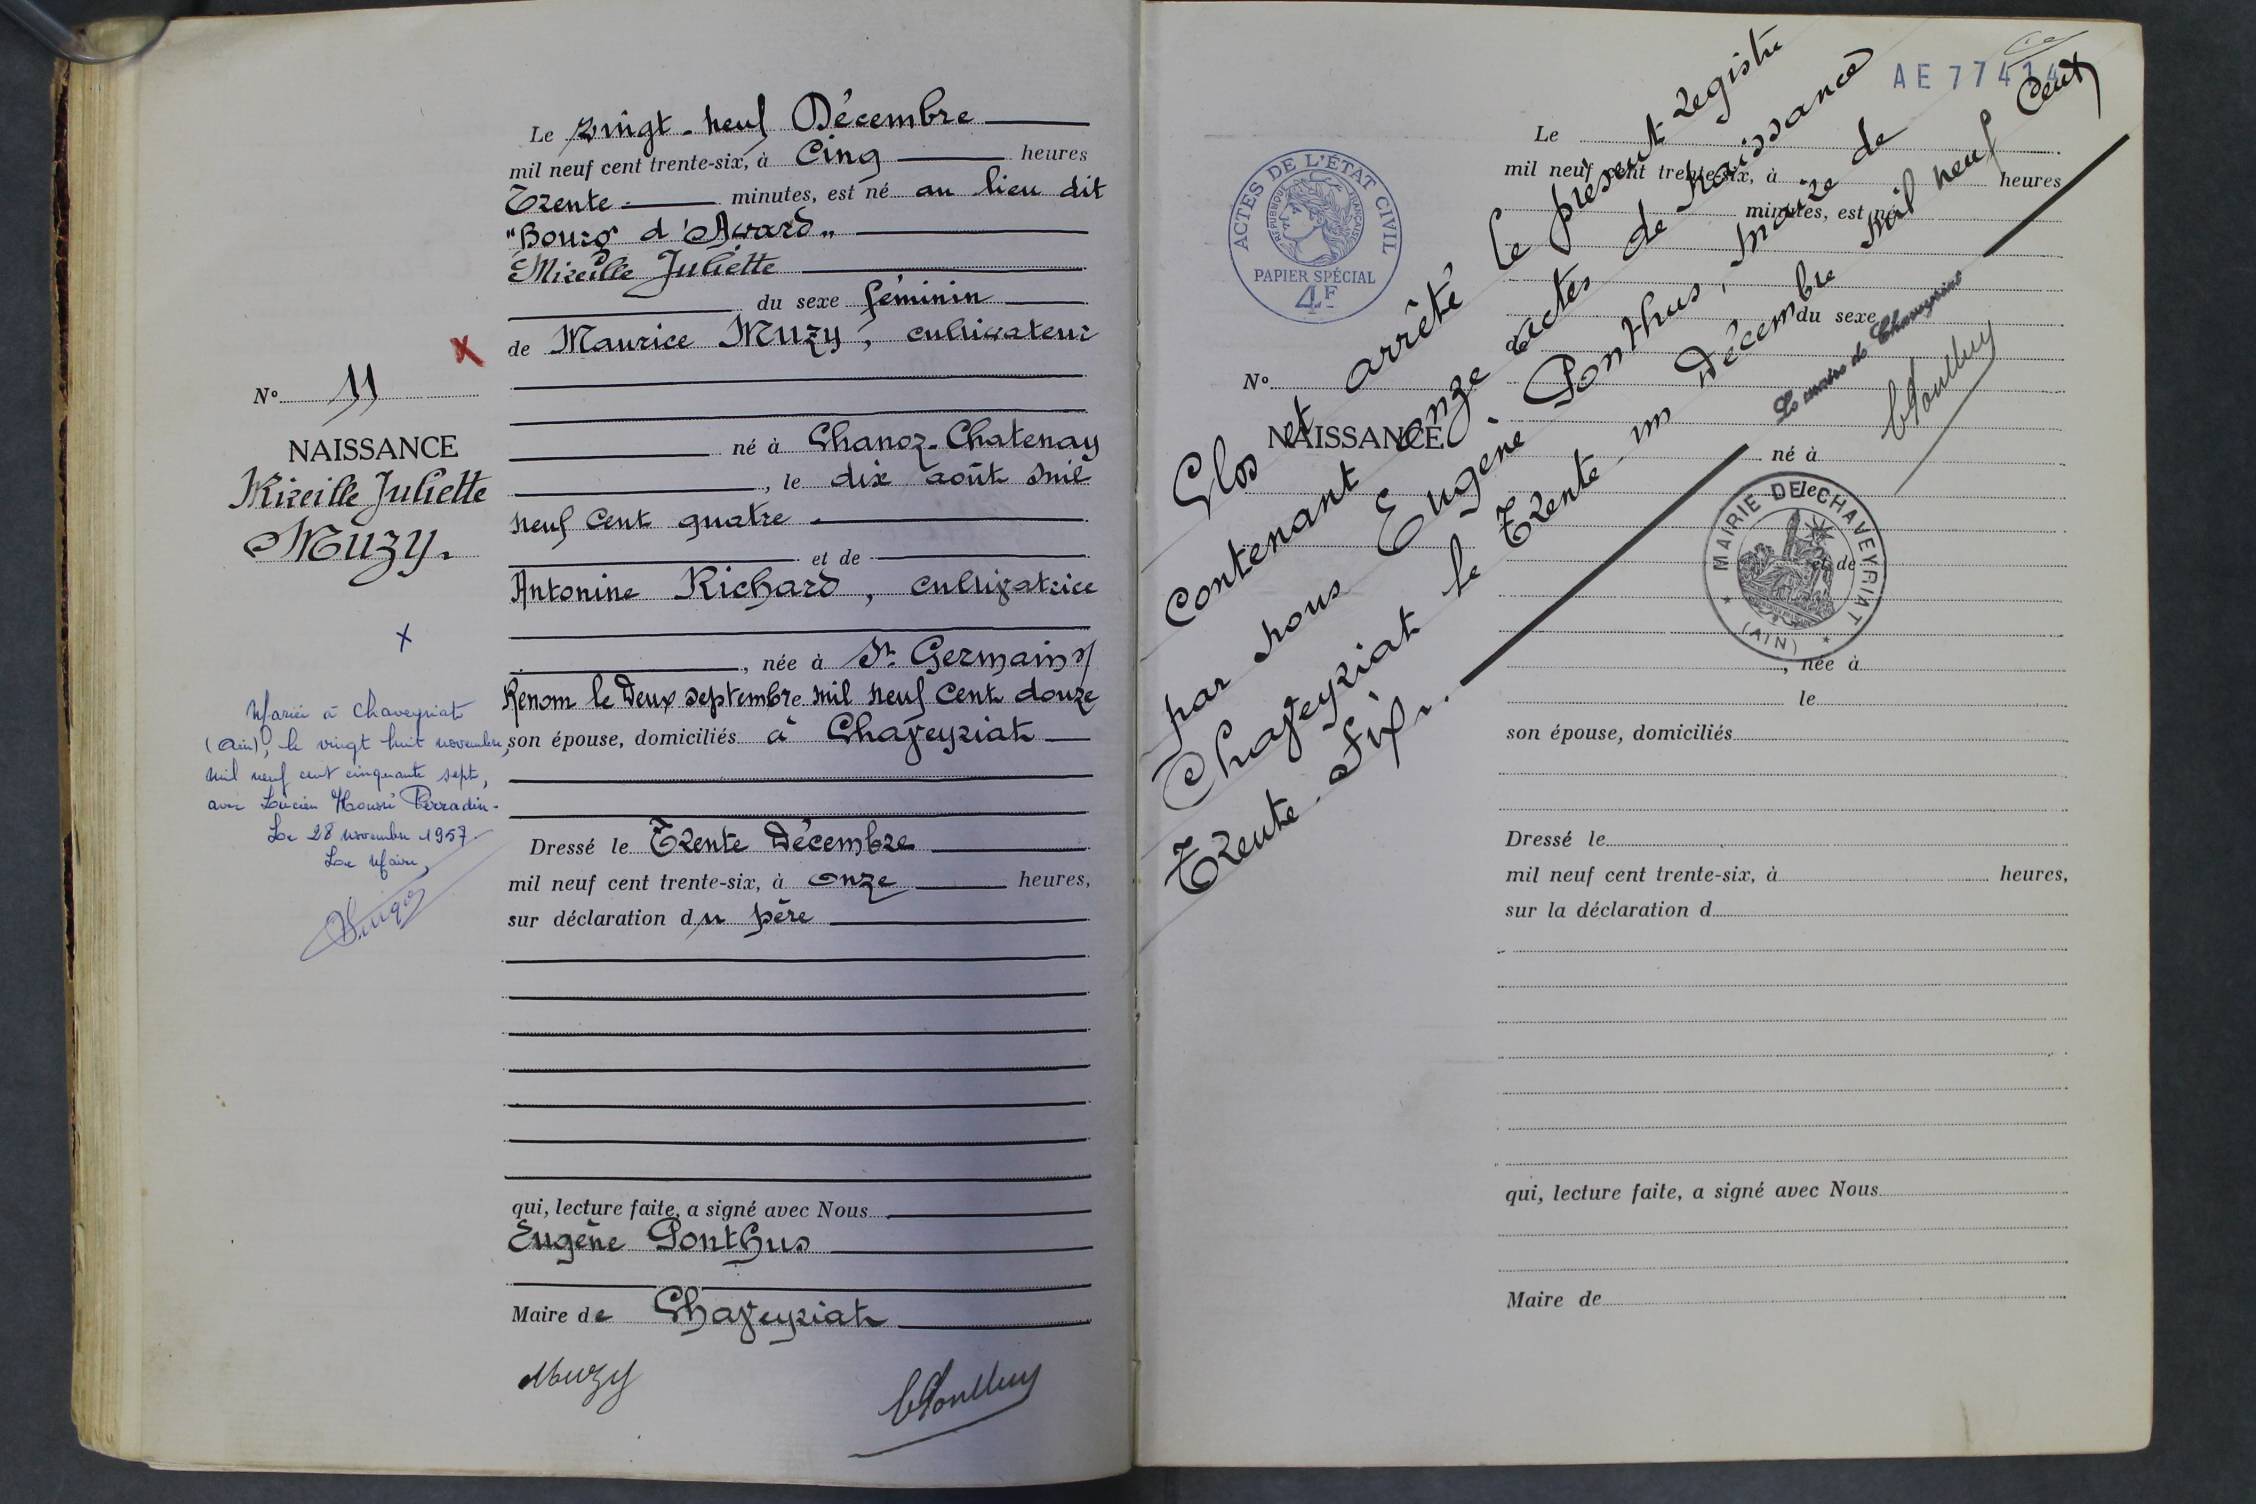 Le vingt-neuf Décembre
mil neuf cent trente-six, à Cinq heures
Trente minutes, est né au lieu dit
"Bourg d'Avard"
Mireille Juliette
du sexe féminin
de Maurice Muzy, cultivateur
né à Chanoz-Chatenay
, le dix août mil
neuf Cent quatre
et de
Antonine Richard, cultivatrice
, née à St Germain s/
Renom le Deux septembre mil neuf cent douze
son épouse, domiciliés à Chaveyriat
Dressé le Trente Décembre
mil neuf cent trente-six, à onze heures,
sur déclaration du père
qui, lecture faite, a signé avec Nous
Eugène Ponthus
Maire de Chaveyriat
Muzy
N° 11
NAISSANCE
Mireille Juliette
Muzy.
Mariée à Chaveyriat
(Ain), le vingt huit novembre,
mil neuf cent cinquante sept,
avec Lucien Perradin-
Le 28 novembre 1957
Le Maire,
AE 77414
ACTES DE L'ÉTAT CIVIL
RÉPUBLIQUE FRANÇAISE
PAPIER SPÉCIAL
4F
Clos et arrêté le présent registre
Contenant onze actes de Naissance
par nous Eugène Ponthus, Maire de
Chaveyriat le Trente un Décembre Mil neuf Cent
Trente-Six.
Le maire de Chaveyriat
MAIRIE DE CHAVEYRIAT
(AIN)
N°
NAISSANCE
Le
mil neuf cent trente-six, à heures
minutes, est né
du sexe
de
né à
le
et de
, née à
le
son épouse, domiciliés
Dressé le
mil neuf cent trente-six, à heures,
sur la déclaration d
qui, lecture faite, a signé avec Nous
Maire de